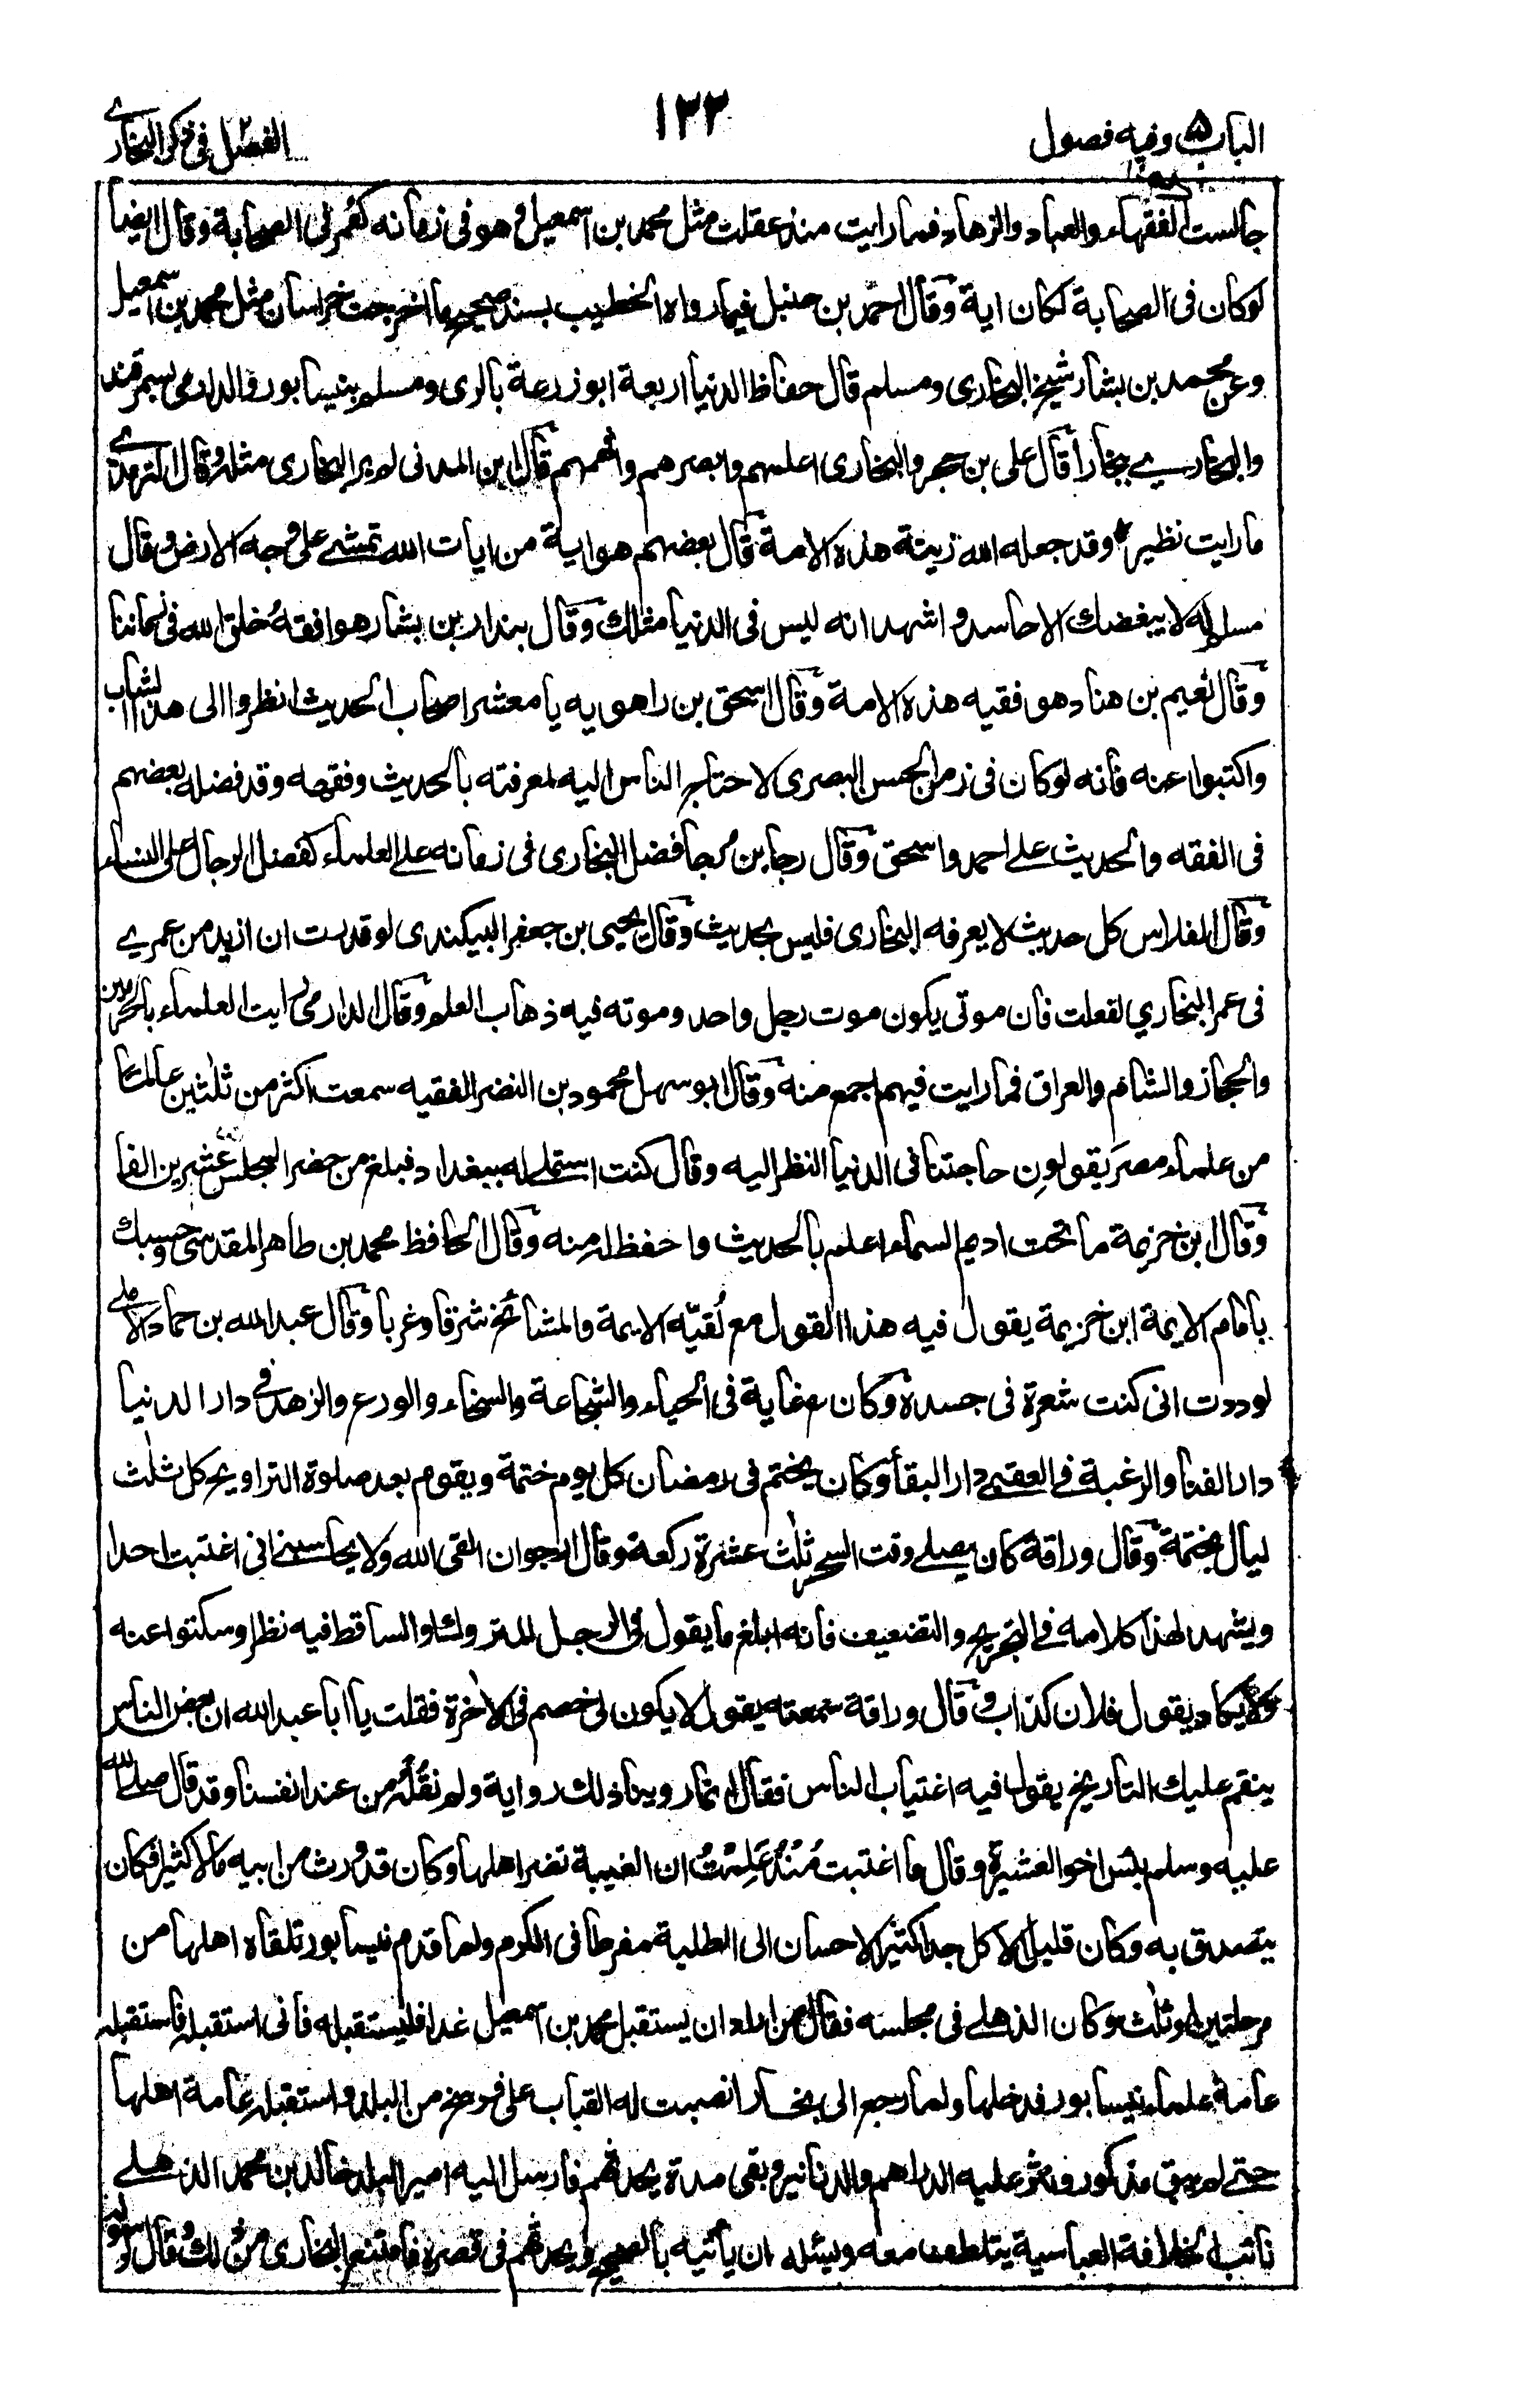 الباب ۵ وفيه فصول
١٣٣
الفصل في ذكر البخاري
جالست الفقهاء والعباد والزهاد فما رايت منذ عقلت مثل محمد بن اسمعيل وهو فى زمانه كعمر فى الصحابة وقال ايضا
لو كان فى الصحابة لكان اية وقال احمد بن حنبل فيما رواه الخطيب بسند صحيح ما اخرجت خراسان مثل محمد بن اسمعيل
وعن محمد بن بشار شيخ البخارى ومسلم قال حفاظ الدنيا اربعة ابو زرعة بالرى ومسلم بنيسابور والدارمى بسمرقند
والبخارى ببخارا قال على بن حجر والبخارى اعلمهم وابصرهم وافهمهم قال ابن المدنى لم ير البخارى مثله وقال الترمذى
ما رايت نظيره وقد جعله الله زينة هذه الامة قال بعضهم هو اية من ايات الله تمشى على وجه الارض وقال
مسلم له لا يبغضك الا حاسد واشهد انه ليس فى الدنيا مثلك وقال بندار بن بشار هو افقه خلق الله فى زماننا
وقال نعيم بن هناد هو فقيه هذه الامة وقال اسحق بن راهويه يا معشر اصحاب الحديث انظروا الى هذا الشاب
واكتبوا عنه فانه لو كان فى زمن الحسن البصرى لاحتاج الناس اليه لمعرفته بالحديث وفقهه وقد فضله بعضهم
فى الفقه والحديث على احمد واسحق وقال رجا بن مرجا فضل البخارى فى زمانه على العلماء كفضل الرجال على النساء
وقال الفلاس كل حديث لا يعرفه البخارى فليس بحديث وقال يحيى بن جعفر البيكندى لو قدرت ان ازيد من عمرى
فى عمر البخاري لفعلت فان موتى يكون موت رجل واحد وموته فيه ذهاب العلم وقال الدارمى رايت العلماء بالحرمين
والحجاز والشام والعراق فما رايت فيهم اجمع منه وقال ابو سهل محمود بن النضر الفقيه سمعت اكثر من ثلثين عالما
من علماء مصر يقولون حاجتنا فى الدنيا النظر اليه وقال كنت استملى له ببغداد فبلغ من حضر المجلس عشرين الفا
وقال ابن خزيمة ما تحت اديم السماء اعلم بالحديث واحفظ له منه وقال الحافظ محمد بن طاهر المقدسى وحسبك
بامام الايمة ابن خزيمة يقول فيه هذا القول مع لقيه الايمة والمشائخ شرقا وغربا وقال عبد الله بن حماد الاملى
لوددت انى كنت شعرة فى جسده وكان غاية فى الحياء والشجاعة والسخاء والورع والزهد فى دار الدنيا
دار الفنا والرغبة فى العقبى دار البقا وكان يختم فى رمضان كل يوم ختمة ويقوم بعد صلوة التراويح كل ثلث
ليال بختمة وقال وراقة كان يصلى وقت السحر ثلث عشرة ركعة وقال ارجو ان القى الله ولا يحاسبنى انى اغتبت احدا
ويشهد لهذا كلامه فى التجريح والتضعيف فانه ابلغ ما يقول فى الرجل المتروك او الساقط فيه نظر وسكتوا عنه
ولا يكاد يقول فلان كذاب وقال وراقة سمعته يقول لا يكون لى خصم فى الاخرة فقلت يا ابا عبد الله ان بعض الناس
ينقم عليك التاريخ يقول فيه اغتياب الناس فقال انما روينا ذلك رواية ولم نقله من عند انفسنا وقد قال صلى الله
عليه وسلم بئس اخو العشيرة وقال ما اغتبت منذ علمت ان الغيبة تضر اهلها وكان قد ورث من ابيه مالا كثيرا فكان
يتصدق به وكان قليل الاكل جدا كثير الاحسان الى الطلبة مفرطا فى الكرم ولما قدم نيسابور تلقاه اهلها من
مرحلتين او ثلث وكان الذهلى فى مجلسه فقال من اراد ان يستقبل محمد بن اسمعيل غدا فليستقبله فانى استقبله فاستقبله
عامة علماء نيسابور فدخلها ولما رجع الى بخارا نصبت له القباب على فرسخ من البلد واستقبله عامة اهلها
حتى لم يبق مذكور ونثر عليه الدراهم والدنانير وبقى مدة يحدثهم فارسل اليه امير البلد خالد بن محمد الذهلى
نائب الخلافة العباسية يتلطف معه ويسئله ان يأتيه بالصحيح ويحدثهم فى قصره فامتنع البخارى من ذلك وقال لرسوله